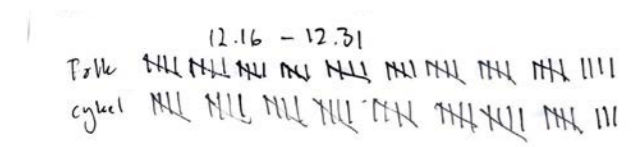 12.16 - 12.31
Folk 卌 卌 卌 卌 卌 卌 卌 卌 卌 IIII
cykel 卌 卌 卌 卌 卌 卌 卌 卌 III